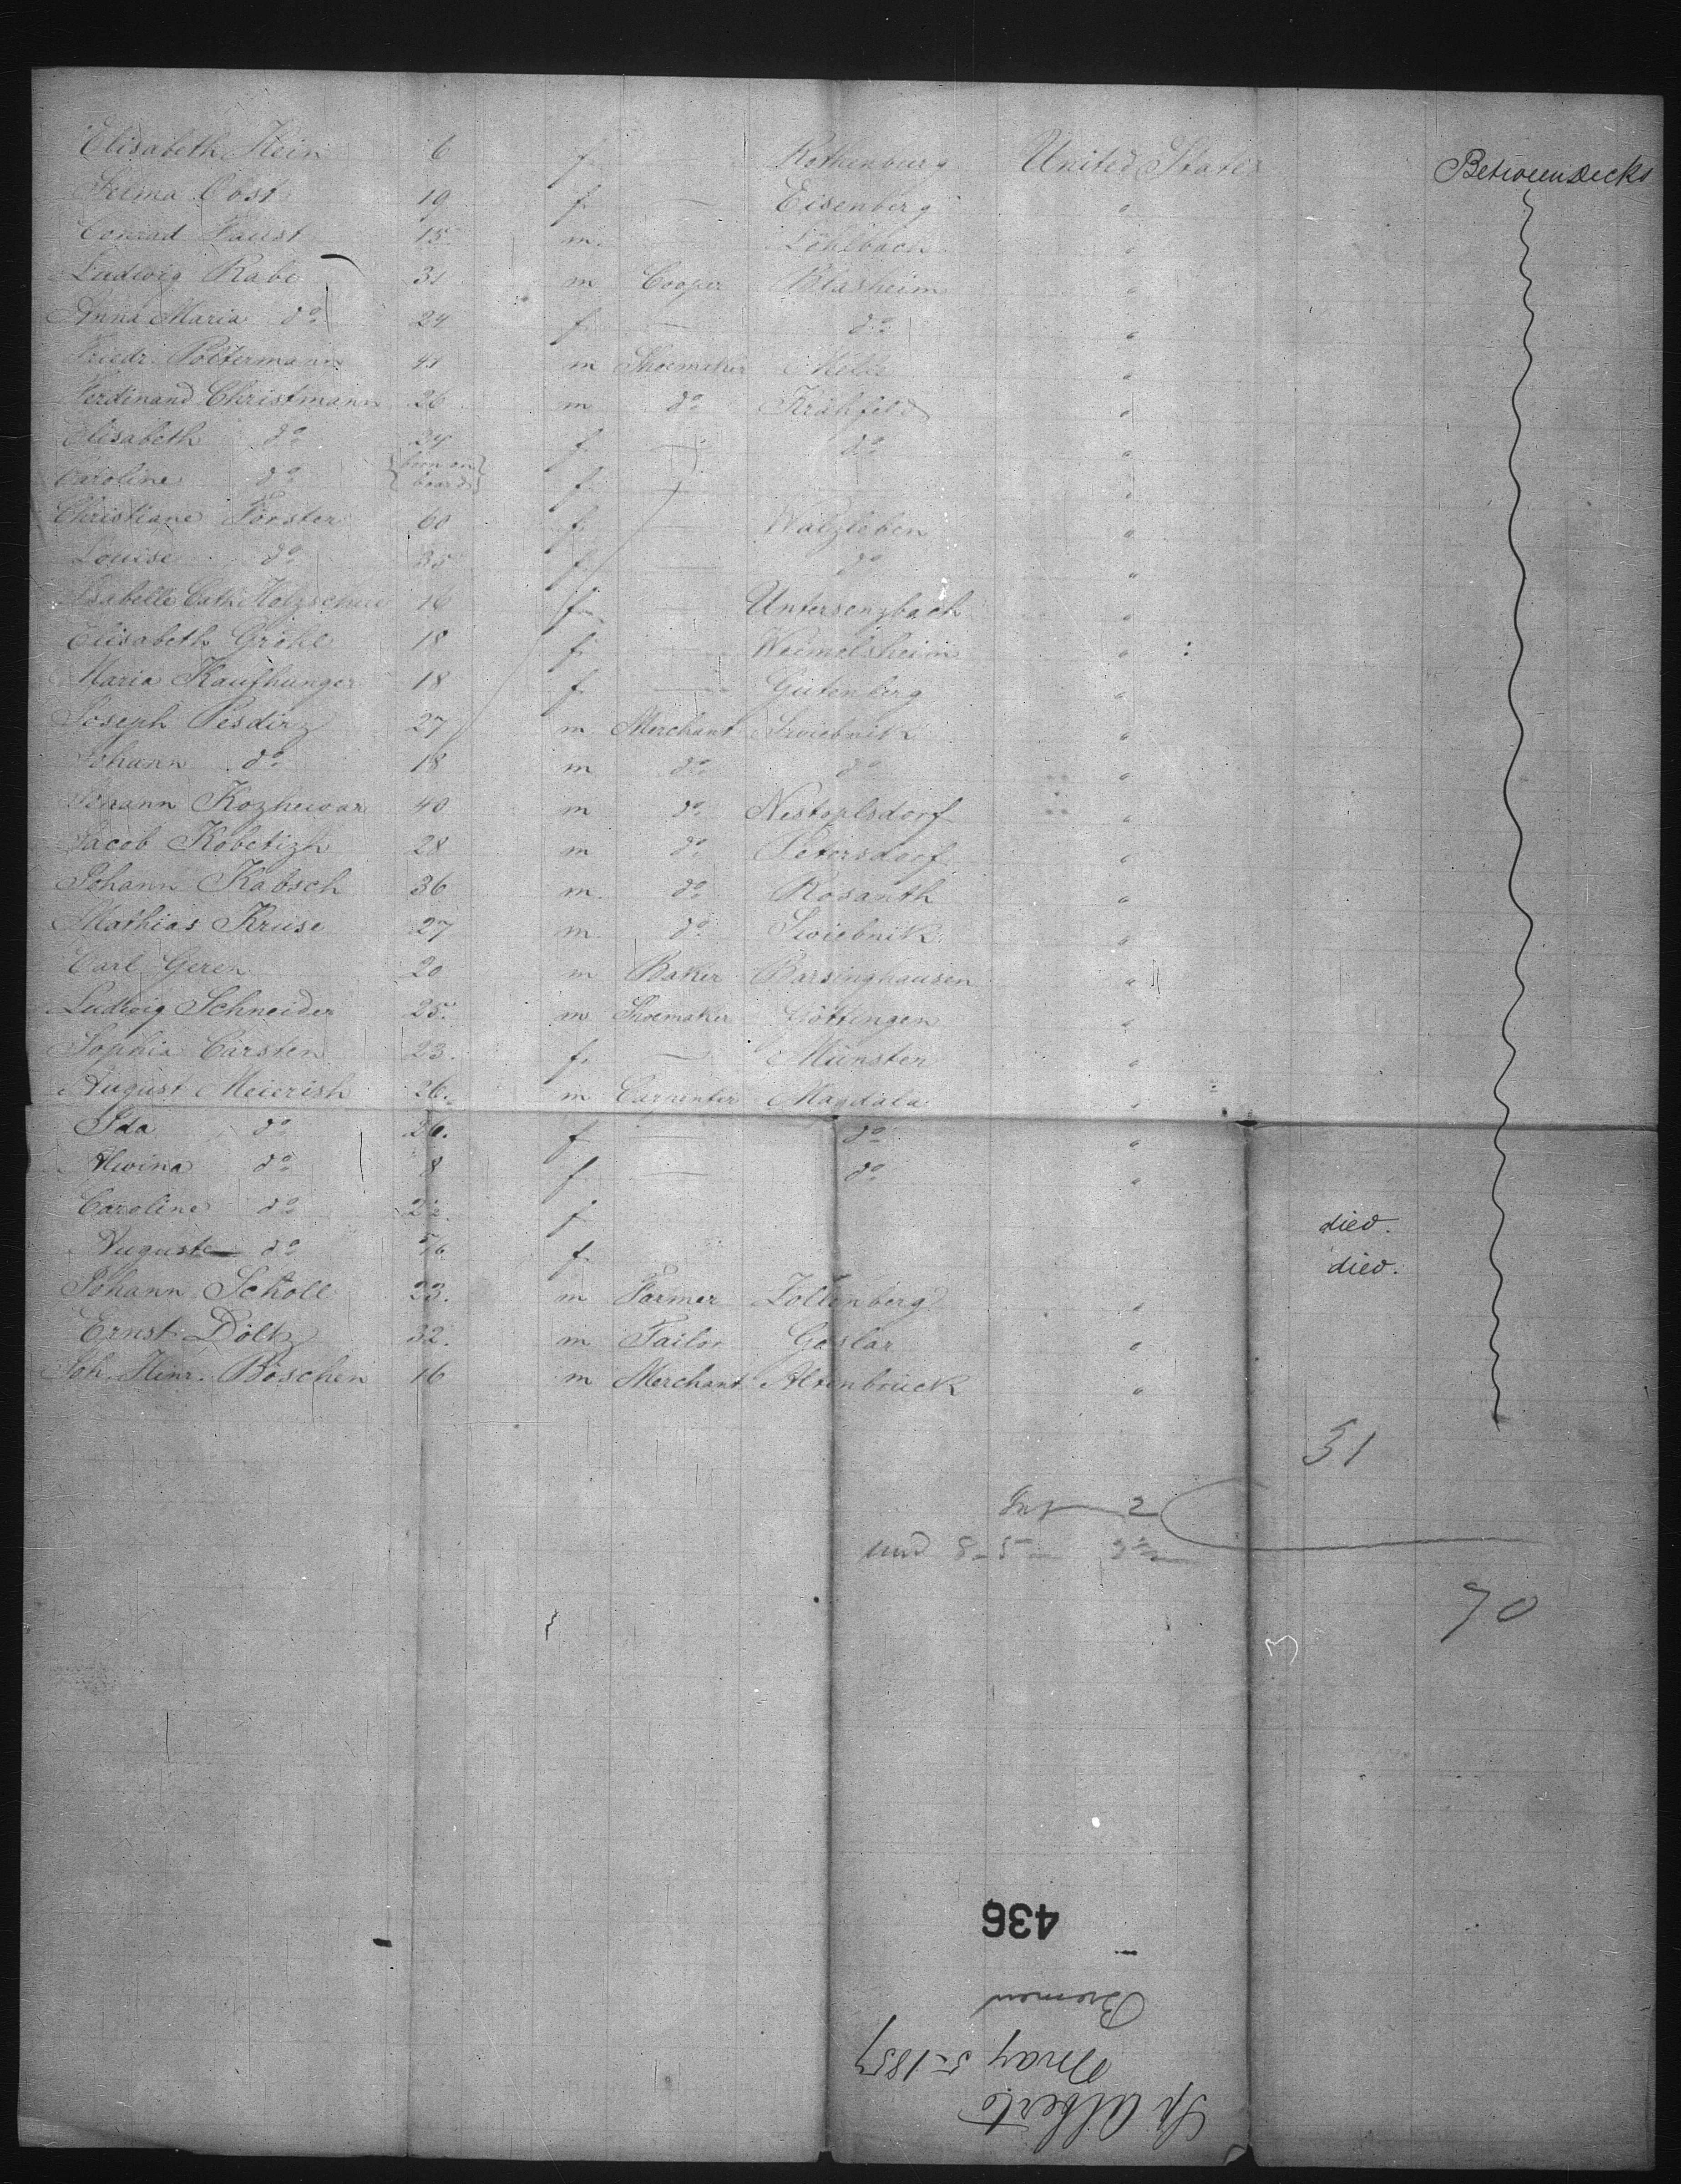 Elisabeth Hein 6 f. Rothenburg United States Between Decks
Selma Obst 19 f. — Eisenberg "
Conrad Faust 15. m. Löhlbach "
Ludwig Rabe 31 m Cooper Blasheim "
Anna Maria do 24 f. — do "
Friedr. Poltermann 41 m Shoemaker Melle "
Ferdinand Christmann 26 m do Krähfeld "
Elisabeth do 24 f. — do "
Caroline do {born on board} f. — "
Christiane Förster 60 f. — Walzleben "
Louise do 35 f — do "
Isabelle Cath. Holzschue 16 f. — Untersenzbach "
Elisabeth Gröhl 18 f. — Weimelsheim "
Maria Kaufhunger 18 f. — Gutenberg "
Joseph Pesdirz 27 m. Merchant Swiebnik "
Johann do 18 m do do "
Johann Kozhewar 40 m do Nestoplsdorf "
Jacob Kobetizh 28 m do Petersdorf "
Johann Kabsch 36 m. do Rosanth "
Mathias Kruse 27 m. do Swiebnik "
Carl Geren 20 m Baker Barsinghausen "
Ludwig Schneider 25. m Shoemaker Göttingen "
Sophia Carsten 23. f. — Münster "
August Meierish 26. m Carpenter Magdala "
Ida do 26. f — do "
Alwina do 8 f — do "
Caroline do 22. f died.
Auguste do f. died.
Johann Scholl 23. m Farmer Zollenberg "
Ernst Döltz 32. m Tailor Goslar "
Joh. Hinr. Böschen 16 m Merchant Altenbruck "
31
2
und 8-5
70
3
436
Bremen
May 5-1857
Sp Alberto